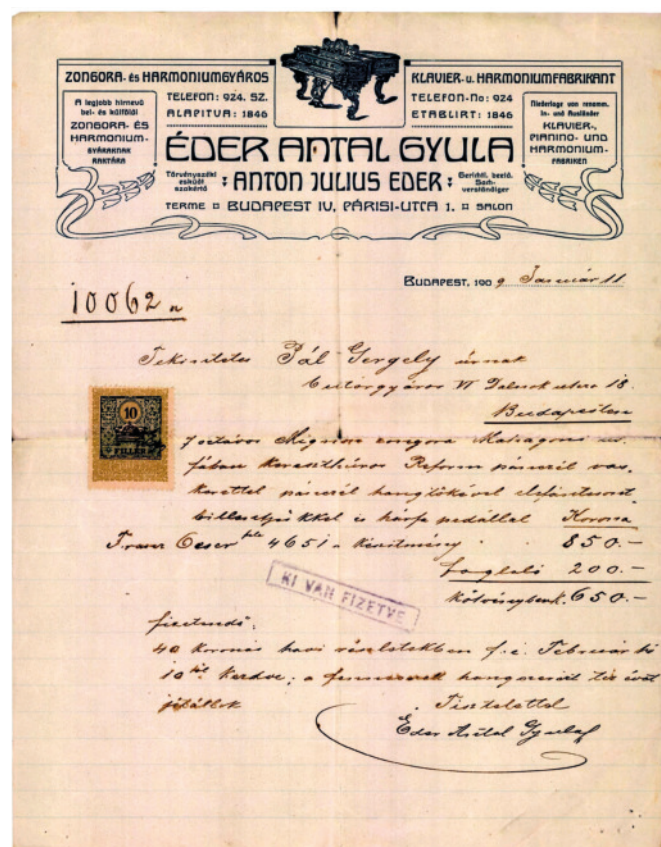 ZONGORA- ÉS HARMONIUMGYÁROS
KLAVIER- u. HARMONIUMFABRIKANT
A legjobb hirnevű
bel- és külföldi
ZONGORA- ÉS
HARMONIUM-
GYÁRAKNAK
RAKTÁRA
TELEFON: 924. SZ.
ALAPITVA: 1846
TELEFON-No: 924
ETABLIRT: 1846
Niederlage von renomm.
In- und Ausländer
KLAVIER-,
PIANINO- UND
HARMONIUM-
FABRIKEN
ÉDER ANTAL GYULA
Törvényszéki
esküdt
szakértő
ANTON JULIUS EDER
Gerichtl. beeid.
Sach-
verständiger
TERME BUDAPEST IV, PÁRISI-UTCA 1. SALON
BUDAPEST, 1909 Január 11
10062
Tekintetes Pál Gergely úrnak
VI Dalnok utcza 18.
Budapesten
10
FILLÉR
7 octávos Mignon zongora
fában kereszthúros Reform pánczél vas
kerettel pánczél hangtőkével elefántcsont
billentyűkkel és hárfa pedállal Korona
4651 készítmény 850.-
foglaló 200.-
650.-
KI VAN FIZETVE
fizetendő:
40 koronás havi részletekben f. é. Február hó
10 től kezdve; a hangszerért tíz évet
jótállok
Tisztelettel
Éder Antal Gyula